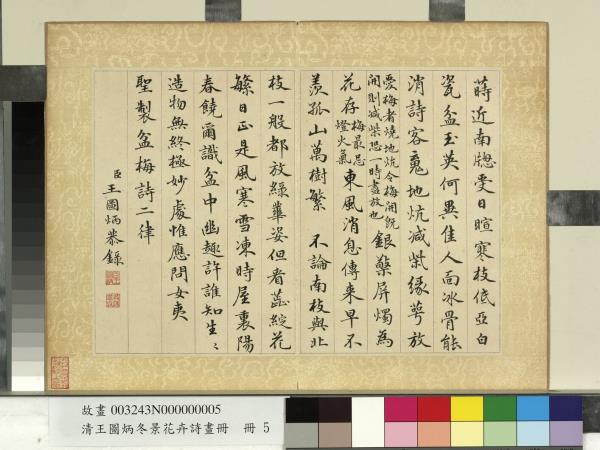 蒔近南牕受日暄寒枝低亞白
瓷盆玉英何異佳人面冰骨能
消詩客䰟地炕減柴緣萼放
愛梅者燒地炕令梅開既
開則減柴恐一時盡放也
銀檠屏燭為
花存
梅最忌
燈火氣
東風消息傳來早不
羨孤山萬樹繁 不論南枝與北
枝一般都放綠萼姿但看蕋綻花
繁日正是風寒雪凍時屋裏陽
春饒爾識盆中幽趣許誰知生〻
造物無終極妙處惟應問女夷
聖製盆梅詩二律
臣王圖炳恭錄
故畫 003243N000000005
清王圖炳冬景花卉詩畫冊 冊 5